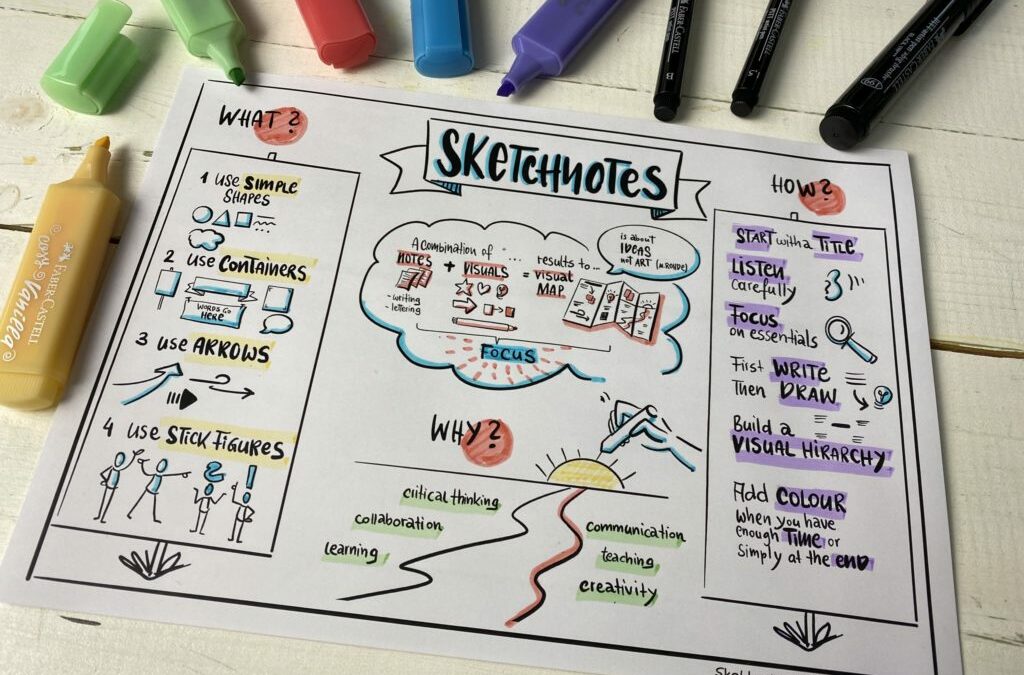 SKETCHNOTES
WHAT?
1 use SIMPLE
SHAPES
2 use CONTAINERS
WORDS GO
HERE
3 use ARROWS
4 use STICK FIGURES
A combination of ...
NOTES
+ VISUALS
- writing
- lettering
results to...
= visual
MAP
is about
IDEAS
NOT ART (M.ROHDE)
FOCUS
WHY?
critical thinking
collaboration
learning
communication
teaching
creativity
HOW?
START with a TITLE
LISTEN
carefully
FOCUS
on essentials
First WRITE
Then DRAW
Build a
VISUAL HIRARCHY
Add COLOUR
when you have
enough TIME or
simply at the END
FABER-CASTELL
cosy Vanilla
FABER-CASTELL
B
FABER-CASTELL
1.5
FABER-CASTELL